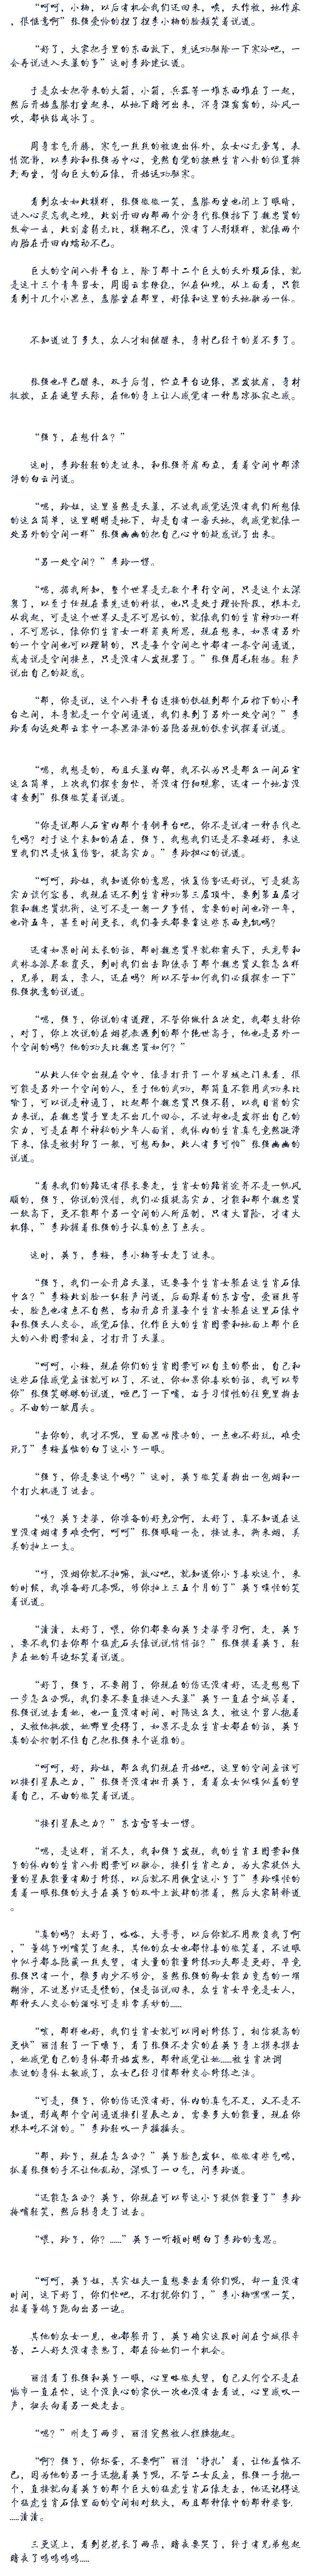 “呵呵，小梅，以后有机会我们还回来，唉，天作被，地作床
，很惬意啊”张强爱怜的捏了捏李小梅的脸颊笑着说道。
“好了，大家把手里的东西放下，先运功驱除一下寒冷吧，一
会再说进入天墓的事”这时李玲建议道。
于是众女把带来的大箱，小箱，兵器等一堆东西堆在了一起，
然后开始盘膝打坐起来，从地下暗河出来，浑身湿漉漉的，冷风一
吹，都快结成冰了。
周身雾气升腾，寒气一丝丝的被迫出体外，众女心无旁骛，表
情沉静，以李玲和张强为中心，竟然自觉的按照生肖八卦的位置排
列而坐，背向巨大的石像，开始运功驱寒。
看到众女如此模样，张强微微一笑，盘膝而坐也闭上了眼睛，
进入心灵忘我之境，此刻丹田内那两个分身代张强挡下了魏忠贤的
致命一击，此刻虚弱无比，模糊不已，没有了人形模样，就像两个
内胎在丹田内蠕动不已。
巨大的空间八卦平台上，除了那十二个巨大的天外陨石像，就
是这十三个青年男女，周围云雾缭绕，似在仙境，从上面看，只能
看到十几个小黑点，盘膝坐在那里，好像和这里的天地融为一体。
不知道过了多久，众人才相继醒来，身材已经干的差不多了。
张强也早已醒来，双手后背，伫立平台边缘，黑发披肩，身材
挺拔，正在遥望天际，在他的身上让人感觉有一种悲凉孤寂之感。
“强子，在想什么？”
这时，李玲轻轻的走过来，和张强并肩而立，看着空间中那漂
浮的白云问道。
“嗯，玲姐，这里虽然是天墓，不过我感觉远没有我们所想像
的这么简单，这里明明是地下，却是自有一番天地，我感觉就像一
处另外的空间一样”张强幽幽的把自己心中的疑惑说了出来。
“另一处空间？”李玲一愣。
“嗯，据我所知，整个世界是无数个平行空间，只是这个太深
奥了，以至于任现在最先进的科技，也只是处于理论阶段，根本无
从找起，可是这个世界又是不可思议的，就像我们的生肖神功一样
，不可思议，像你们生肖女一样匪夷所思，现在想来，如果有另外
的一个空间也可以理解的，只是每个空间之中都有一条空间通道，
或者说是空间接点，只是没有人发现罢了。”张强眉毛轻扬。轻声
说出自己的疑惑。
“那，你是说，这个八卦平台连接的铁链到那个石棺下的小平
台之间，本身就是一个空间通道，我们来到了另外一处空间？”李
玲看向远处那云雾中一条黑漆漆的若隐若现的铁索试探着说道。
“嗯，我想是的，而且天墓内部，我不认为只是那么一间石室
这么简单，上次我们探索匆忙，并没有仔细观察，还有一个地方没
有去到”张强微笑着说道。
“你是说那入石室内那个青铜平台吧，你不是说有一种杀伐之
气吗？对于这个未知的存在，强子，我想我们还是不要碰好，来这
里我们只是恢复伤势，提高实力。”李玲担心的说道。
“呵呵，玲姐，我知道你的意思，恢复伤势还好说，可是提高
实力谈何容易，我现在还不到生肖神功第三层顶峰，要到第五层才
能和魏忠贤抗衡，这可不是一朝一夕事情，需要的时间也许一年，
也许五年，甚至时间更长，我们每天都要靠这些东西充饥吗？
还有如果时间太长的话，那时魏忠贤早就称霸天下，天龙帮和
武林各派尽数覆灭，到时我们出去即使杀了那个魏忠贤又能怎么样
，兄弟，朋友，亲人，还在吗？所以不管如何我们必须探索一下”
张强执意的说道。
“嗯，强子，你说的有道理，不管你做什么决定，我都支持你
，对了，你上次说的在烟花寨遇到的那个绝世高手，他也是另外一
个空间的吗？他的功夫比魏忠贤如何？”
“从此人任空出现在空中，像是打开了一个星域之门来看，很
可能是另外一个空间的人，至于他的武功，那简直不能用武功来比
喻了，可以说是神通了，比起那个魏忠贤只强不弱，以我目前的实
力来说，在魏忠贤手里走不出几个回合，不过却也是发挥出自己的
实力，可是在那个神秘的少年人面前，我体内的生肖真气竟然凝滞
下来，像是被封印了一般，可想而知，此人有多可怕”张强幽幽的
说道。
“看来我们的路还有很长要走，生肖女的路前途并不是一帆风
顺的，强子，你说的没错，我们必须提高实力，才能和那个魏忠贤
一较高下，更不能那个另一空间的人所压制，只有大冒险，才有大
机缘，”李玲握着张强的手认真的点了点头。
这时，英子，李梅，李小楠等女走了过来。
“强子，我们一会开启天墓，还要每个生肖女躲在这生肖石像
中么？”李梅此刻脸一红轻声问道，后面跟着的东方雪，爱丽丝等
女，脸色也有点不自然，当初开启开墓每个生肖女躲在这里石像中
和张强天人交合，感觉石像，化作巨大的生肖图案和地面上那个巨
大的八卦图案相应，才打开了天墓。
“呵呵，小梅，现在你们的生肖图案可以自主的祭出，自己和
这些石像感觉应该就可以了，不过，你如果你喜欢的话，我可以帮
你”张强笑眯眯的说道，咂巴了一下嘴，右手习惯性的往兜里掏去
。不由的一皱眉头。
“去你的，我才不呢，里面黑咕隆冬的，一点也不好玩，难受
死了”李梅羞恼的白了这小子一眼。
“强子，你是要这个吗？”这时，英子微笑着掏出一包烟和一
个打火机递了过去。
“咦？英子老婆，你准备的好充分啊，太好了，真不知道在这
里没有烟有多难受啊，呵呵”张强眼睛一亮，接过来，撕来烟，美
美的抽上一支。
“哼，没烟你就不抽嘛，放心吧，就知道你小子喜欢这个，来
的时候，我准备好几条呢，够你抽上三五个月的了”英子嗔怪的笑
着说道。
“渍渍，太好了，喂，你们都要向英子老婆学习啊，走，英子
，要不我们去你那个猛虎石头像说说悄悄话？”张强搂着英子，轻
声在她的耳边坏笑着说道。
“好了，强子，不要闹了，你现在的伤还没有好，还是想想下
一步怎么办呢，我们要不要直接进入天墓”英子一直在宁城呆着，
张强说过去看她，也一直没有时间，时隔这么久，被这个男人抱着
，又被他挑拨，她哪里受得了，如果不是众生肖女都在的话，英子
真的会控制不住自己把张强来个逆推的。
“呵呵，好，玲姐，那么我们现在开始吧，这里的空间应该可
以接引星辰之力，”张强并没有松开英子，看着众女似嗔似羞的望
着自己，不由的微笑着说道。
“接引星辰之力？”东方雪等女一愣。
“嗯，是这样，前不久，我和强子发现，我的生肖王图案和强
子的体内的生肖八卦图案可以融合，接引生肖之力，为大家提供大
量的星辰能量有助于修炼，以后就不用便宜这小子了”李玲嗔怪的
看着一眼张强的大手在英子的双峰上放肆的揉着，然后大家解释道
。
“真的吗？太好了，咯咯，大哥哥，以后你就不用欺负我了啊
，”董鸽子咧嘴笑了起来，其他的众女也都惊喜的微笑着，不过眼
中似乎都各隐藏一丝失望，有大量的能量修炼功夫那是更好，毕竟
张强只有一个，狼多肉少不够分，虽然张强的御女能力变态的一塌
糊涂，不过总归还是慢的，但是话说回来，众生肖女毕竟是女人，
那种天人交合的滋味可是非常美妙的……
“咦，那样也好，我们生肖女就可以同时修炼了，相信提高的
更快”丽清轻了一下嘴子，看了张强不老实的在英子身上摸来摸去
，她感觉自己的身体都开始发热，那种感觉让她……被生肖决调
教过的身体太敏感了，众女已经习惯那种交合修炼之法。
“可是，强子，你的伤还没有好，体内的真气不足，又不是不
知道，形成那个空间通道接引星辰之力，需要多大的能量，现在你
根本吃不消的。”李玲轻叹一声摇摇头。
“那，玲子，现在怎么办？”英子脸色发红，微微有些气喘，
扒着张强的手不让他乱动，深吸了一口气，问李玲道。
“还能怎么办？英子，你现在可以帮这小子提供能量了”李玲
掩嘴轻笑，然后转身走了过去。
“喂，玲子，你？……”英子一听顿时明白了李玲的意思。
“呵呵，英子姐，其实姐夫一直想要去看你们呢，却一直没有
时间，这下好了，你们忙吧，不打扰你们了，”李小楠嘿嘿一笑，
拉着董鸽子跑向出另一边。
其他的众女一见，也都躲开了，英子确实这段时间在宁城很辛
苦，二人好久没有亲热了，都在给她们一个机会。
丽清看了张强和英子一眼，心里略微失望，自己又何尝不是在
临市一直在忙，这个没良心的家伙一次也没有去看过，心里感叹一
声，扭头向着另一处走去。
“嗯？”刚走了两步，丽清突然被人拦腰抱起。
“啊？强子，你坏蛋，不要啊”丽清‘挣扎’着，让他羞恼不
已，因为他的另一手还抱着英子呢，不管二女反应，张强一手抱一
个，直接就向着英子的那个巨大的猛虎生肖石像走去，他还记得这
个猛虎生肖石像里面的空间相对较大，而且那种像中的那种姿势.
……渍渍。
三更送上，看到花花长了两朵，暗夜要哭了，终于有兄弟想起
暗夜了呜呜呜呜……